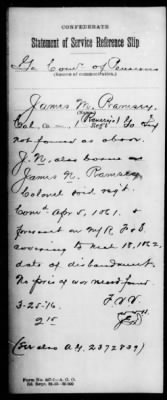 CONFEDERATE
Statement of Service Reference Slip
Ga Com'r of Pensions
(Source of communication.)
James N. Ramsey.
(Name)
Col. Co. (Ramsey's) Ga Inf
Reg't
not found as above.
J.N. also borne as
James N. Ramsey
Colonel said reg't.
Com'd Apr 5, 1861.
present on M/R F&S
covering to Mch 18, 1862,
date of disbandment.
No pris of war record found.
3-25-16
F.V.V.
(See also A.G. 2372839)